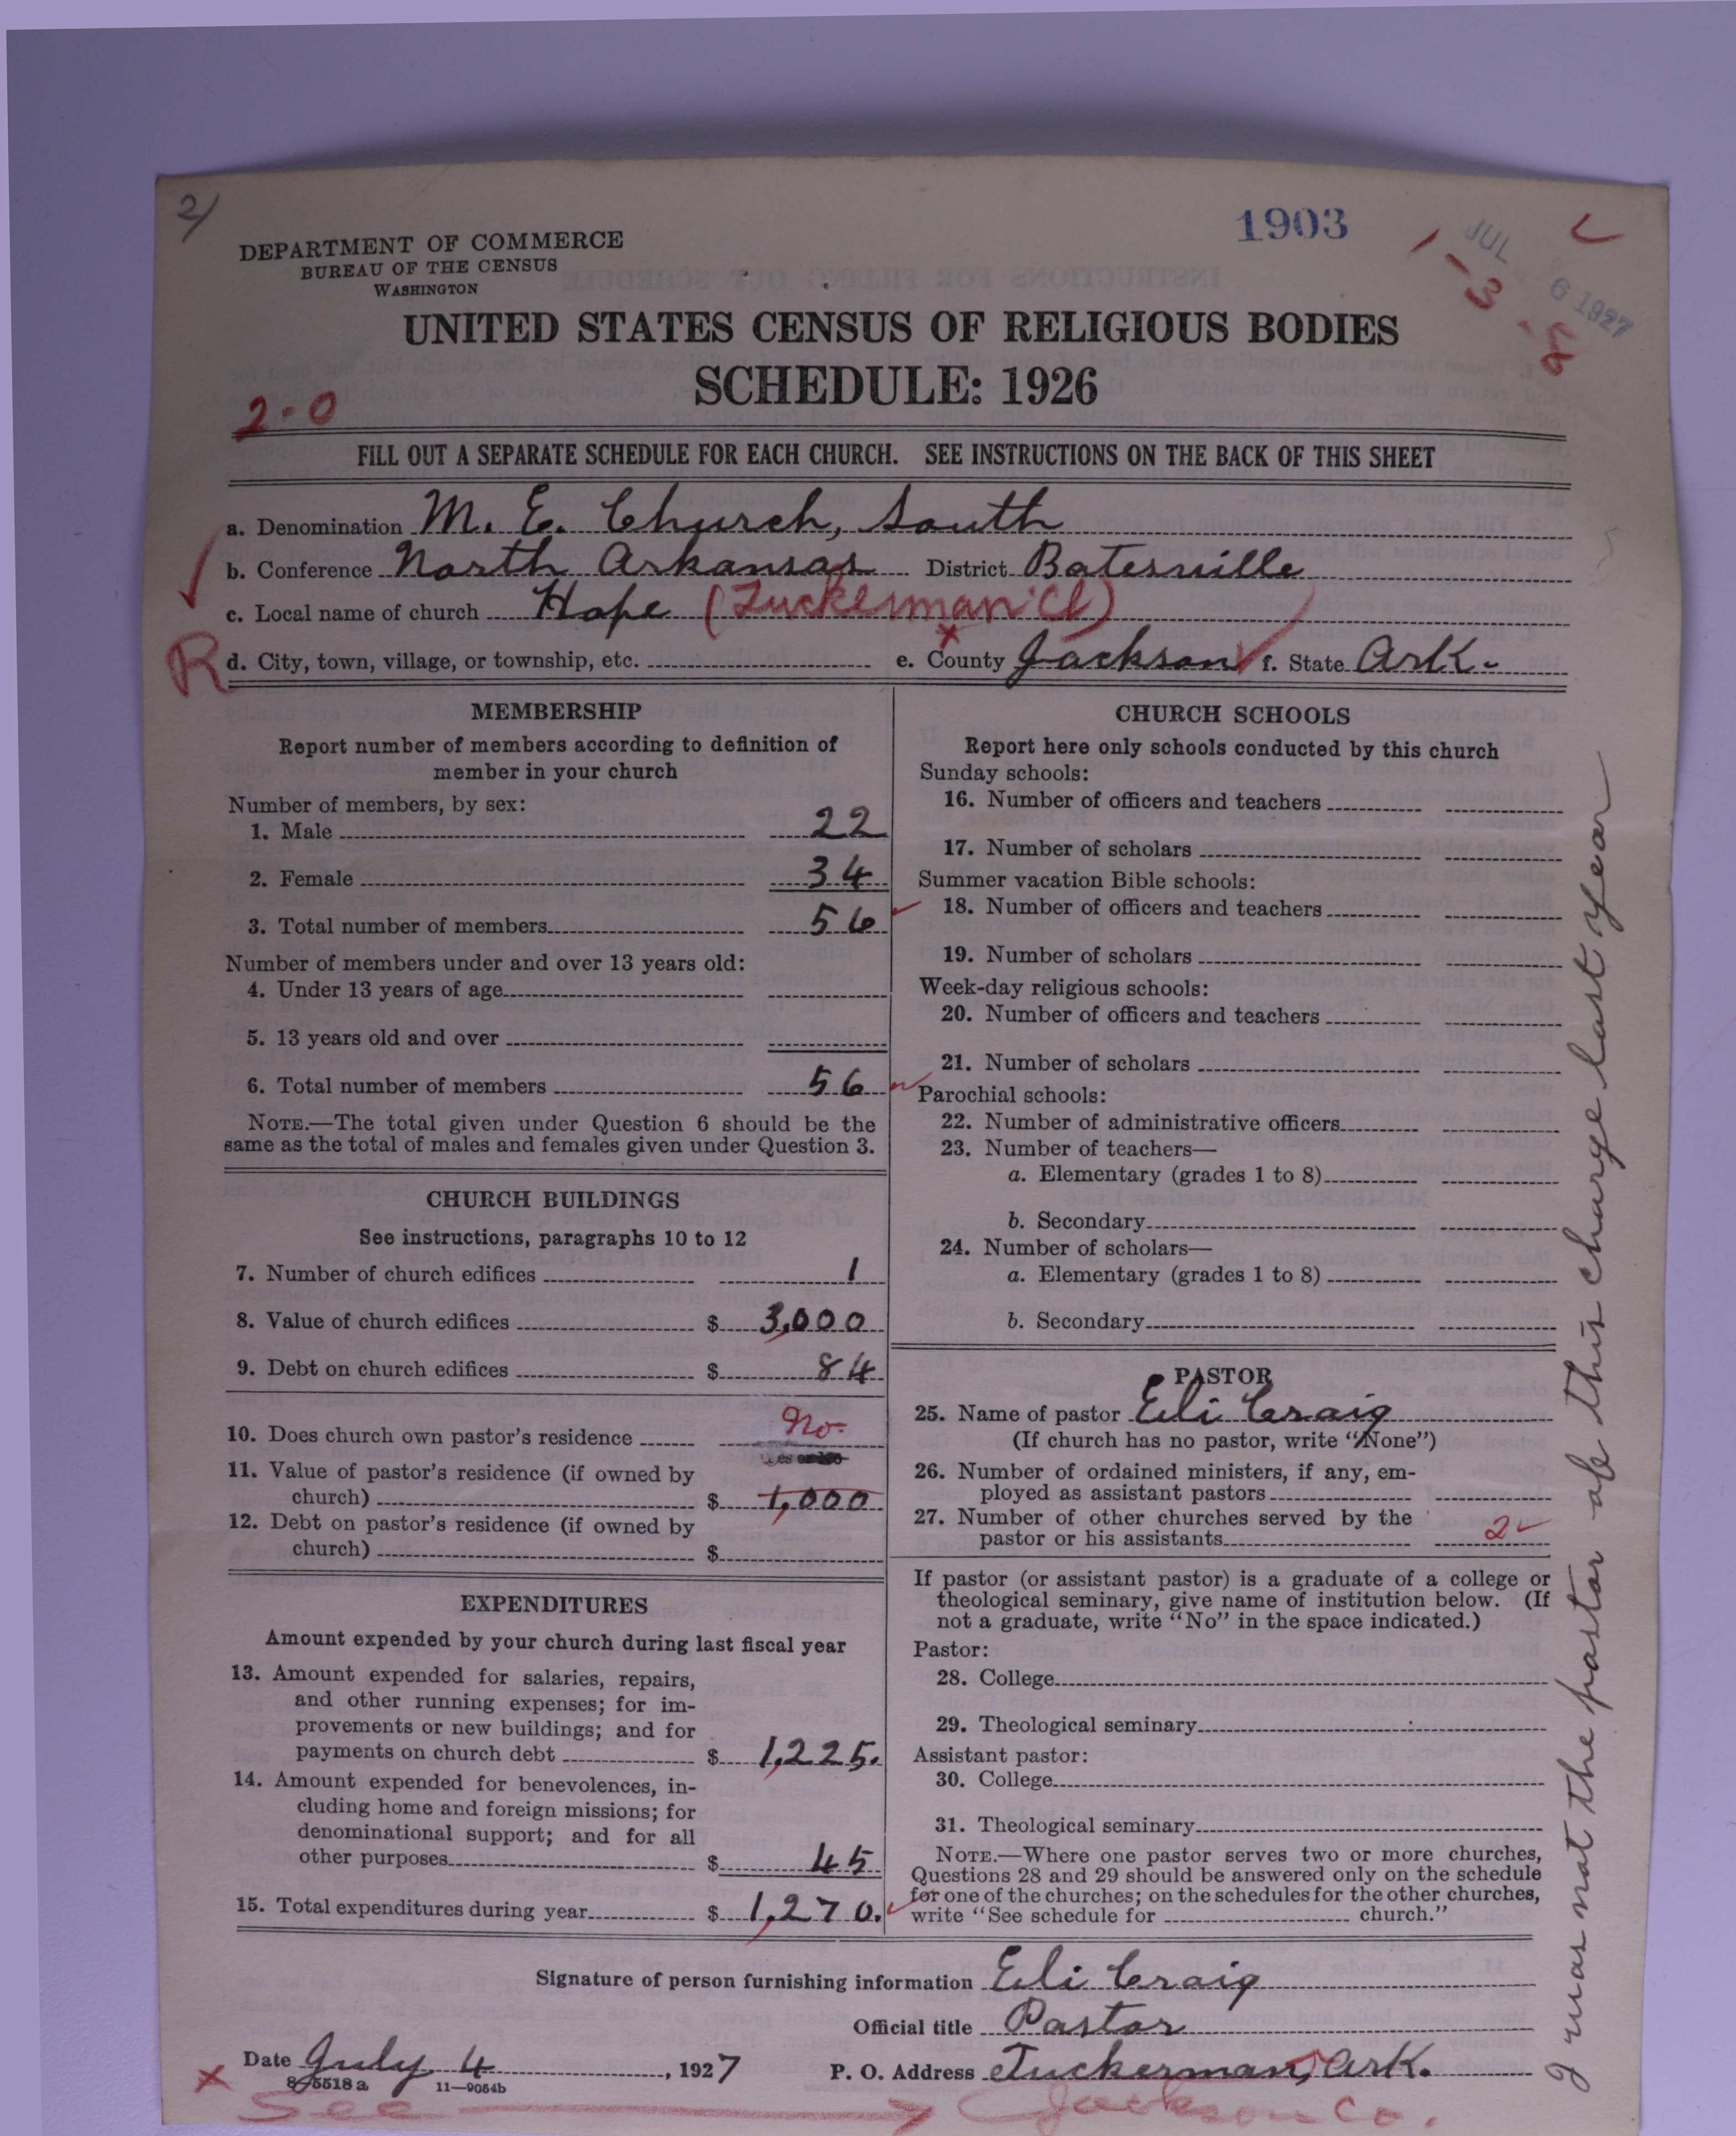 2/
1903
JUL 6 1927
1-3-8
DEPARTMENT OF COMMERCE
BUREAU OF THE CENSUS
WASHINGTON
UNITED STATES CENSUS OF RELIGIOUS BODIES
SCHEDULE: 1926
2-0
FILL OUT A SEPARATE SCHEDULE FOR EACH CHURCH. SEE INSTRUCTIONS ON THE BACK OF THIS SHEET
a. Denomination M. E. Church, South
b. Conference North Arkansas District Batesville
c. Local name of church Hope (Tuckerman Ct)
R d. City, town, village, or township, etc. e. County Jackson f. State Ark.
MEMBERSHIP
Report number of members according to definition of
member in your church
Number of members, by sex:
1. Male 22
2. Female 34
3. Total number of members 56
Number of members under and over 13 years old:
4. Under 13 years of age
5. 13 years old and over
6. Total number of members 56
NOTE.—The total given under Question 6 should be the
same as the total of males and females given under Question 3.
CHURCH BUILDINGS
See instructions, paragraphs 10 to 12
7. Number of church edifices 1
8. Value of church edifices $ 3,000
9. Debt on church edifices $ 84
10. Does church own pastor's residence No.
11. Value of pastor's residence (if owned by
church) $ 1,000
12. Debt on pastor's residence (if owned by
church) $
EXPENDITURES
Amount expended by your church during last fiscal year
13. Amount expended for salaries, repairs,
and other running expenses; for im-
provements or new buildings; and for
payments on church debt $ 1,225.
14. Amount expended for benevolences, in-
cluding home and foreign missions; for
denominational support; and for all
other purposes $ 45
15. Total expenditures during year $ 1,270.
CHURCH SCHOOLS
Report here only schools conducted by this church
Sunday schools:
16. Number of officers and teachers
17. Number of scholars
Summer vacation Bible schools:
18. Number of officers and teachers
19. Number of scholars
Week-day religious schools:
20. Number of officers and teachers
21. Number of scholars
Parochial schools:
22. Number of administrative officers
23. Number of teachers—
a. Elementary (grades 1 to 8)
b. Secondary
24. Number of scholars—
a. Elementary (grades 1 to 8)
b. Secondary
PASTOR
25. Name of pastor Eli Craig
(If church has no pastor, write "None")
26. Number of ordained ministers, if any, em-
ployed as assistant pastors
27. Number of other churches served by the
pastor or his assistants 2
If pastor (or assistant pastor) is a graduate of a college or
theological seminary, give name of institution below. (If
not a graduate, write "No" in the space indicated.)
Pastor:
28. College
29. Theological seminary
Assistant pastor:
30. College
31. Theological seminary
NOTE.—Where one pastor serves two or more churches,
Questions 28 and 29 should be answered only on the schedule
for one of the churches; on the schedules for the other churches,
write "See schedule for church."
Signature of person furnishing information Eli Craig
Official title Pastor
Date July 4, 1927 P. O. Address Tuckerman, Ark.
8-5518 a 11—9054b
x See Jackson Co.
I was not the pastor of this charge last year